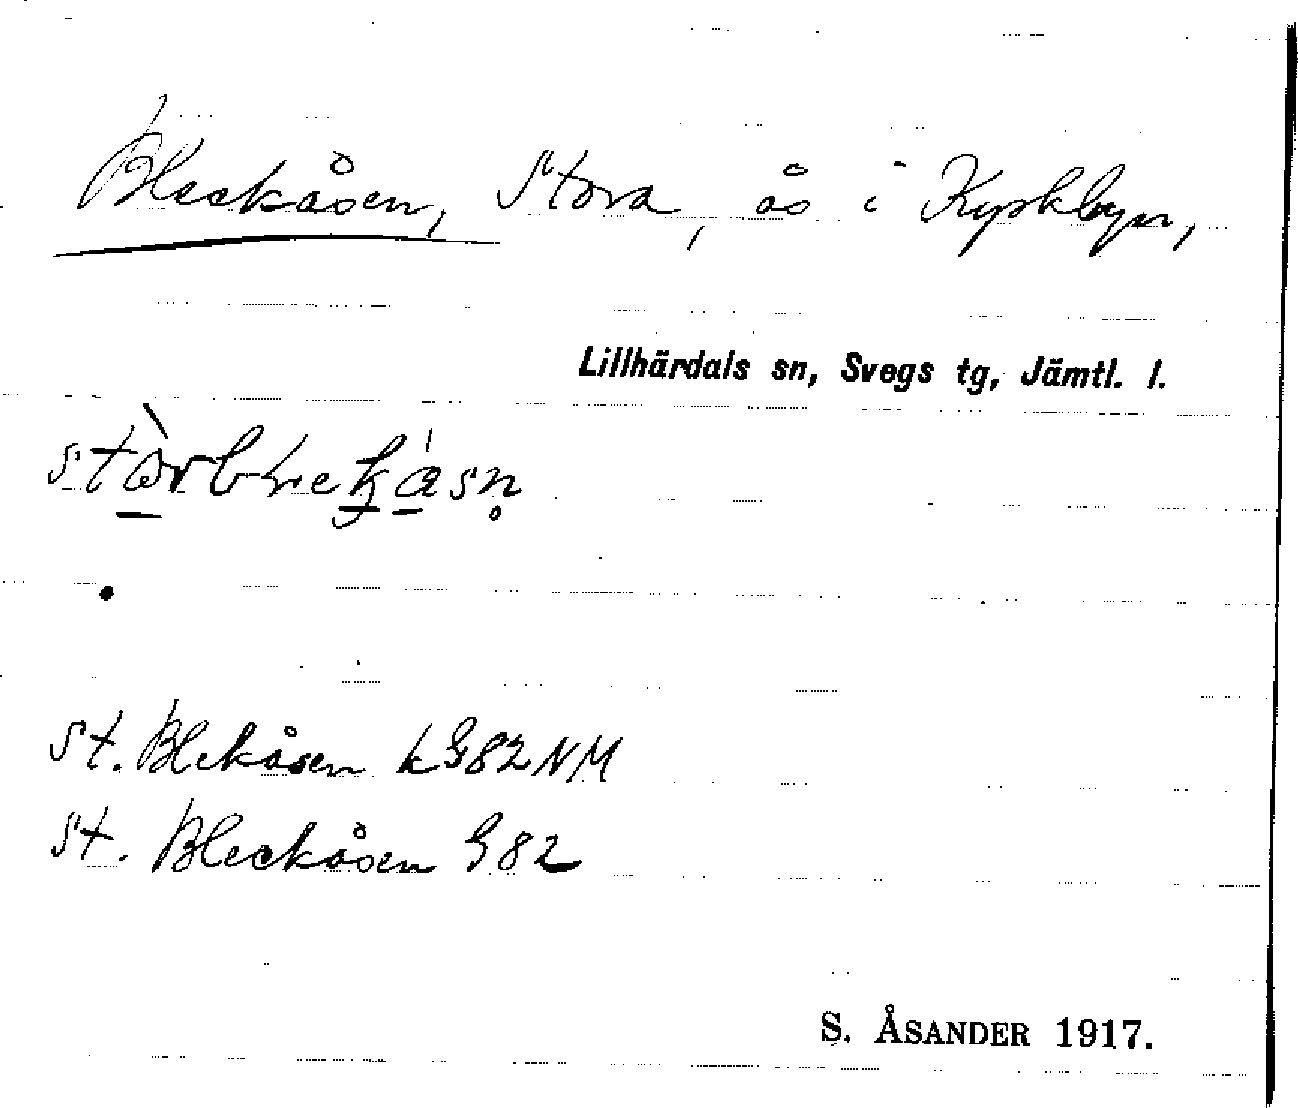 Bleckåsen, Stora, ås i Kyrkbyn,
Lillhärdals sn, Svegs tg, Jämtl. l.
St. Blekåsen k G82 NM
St. Bleckåsen G82
S. ÅSANDER 1917.